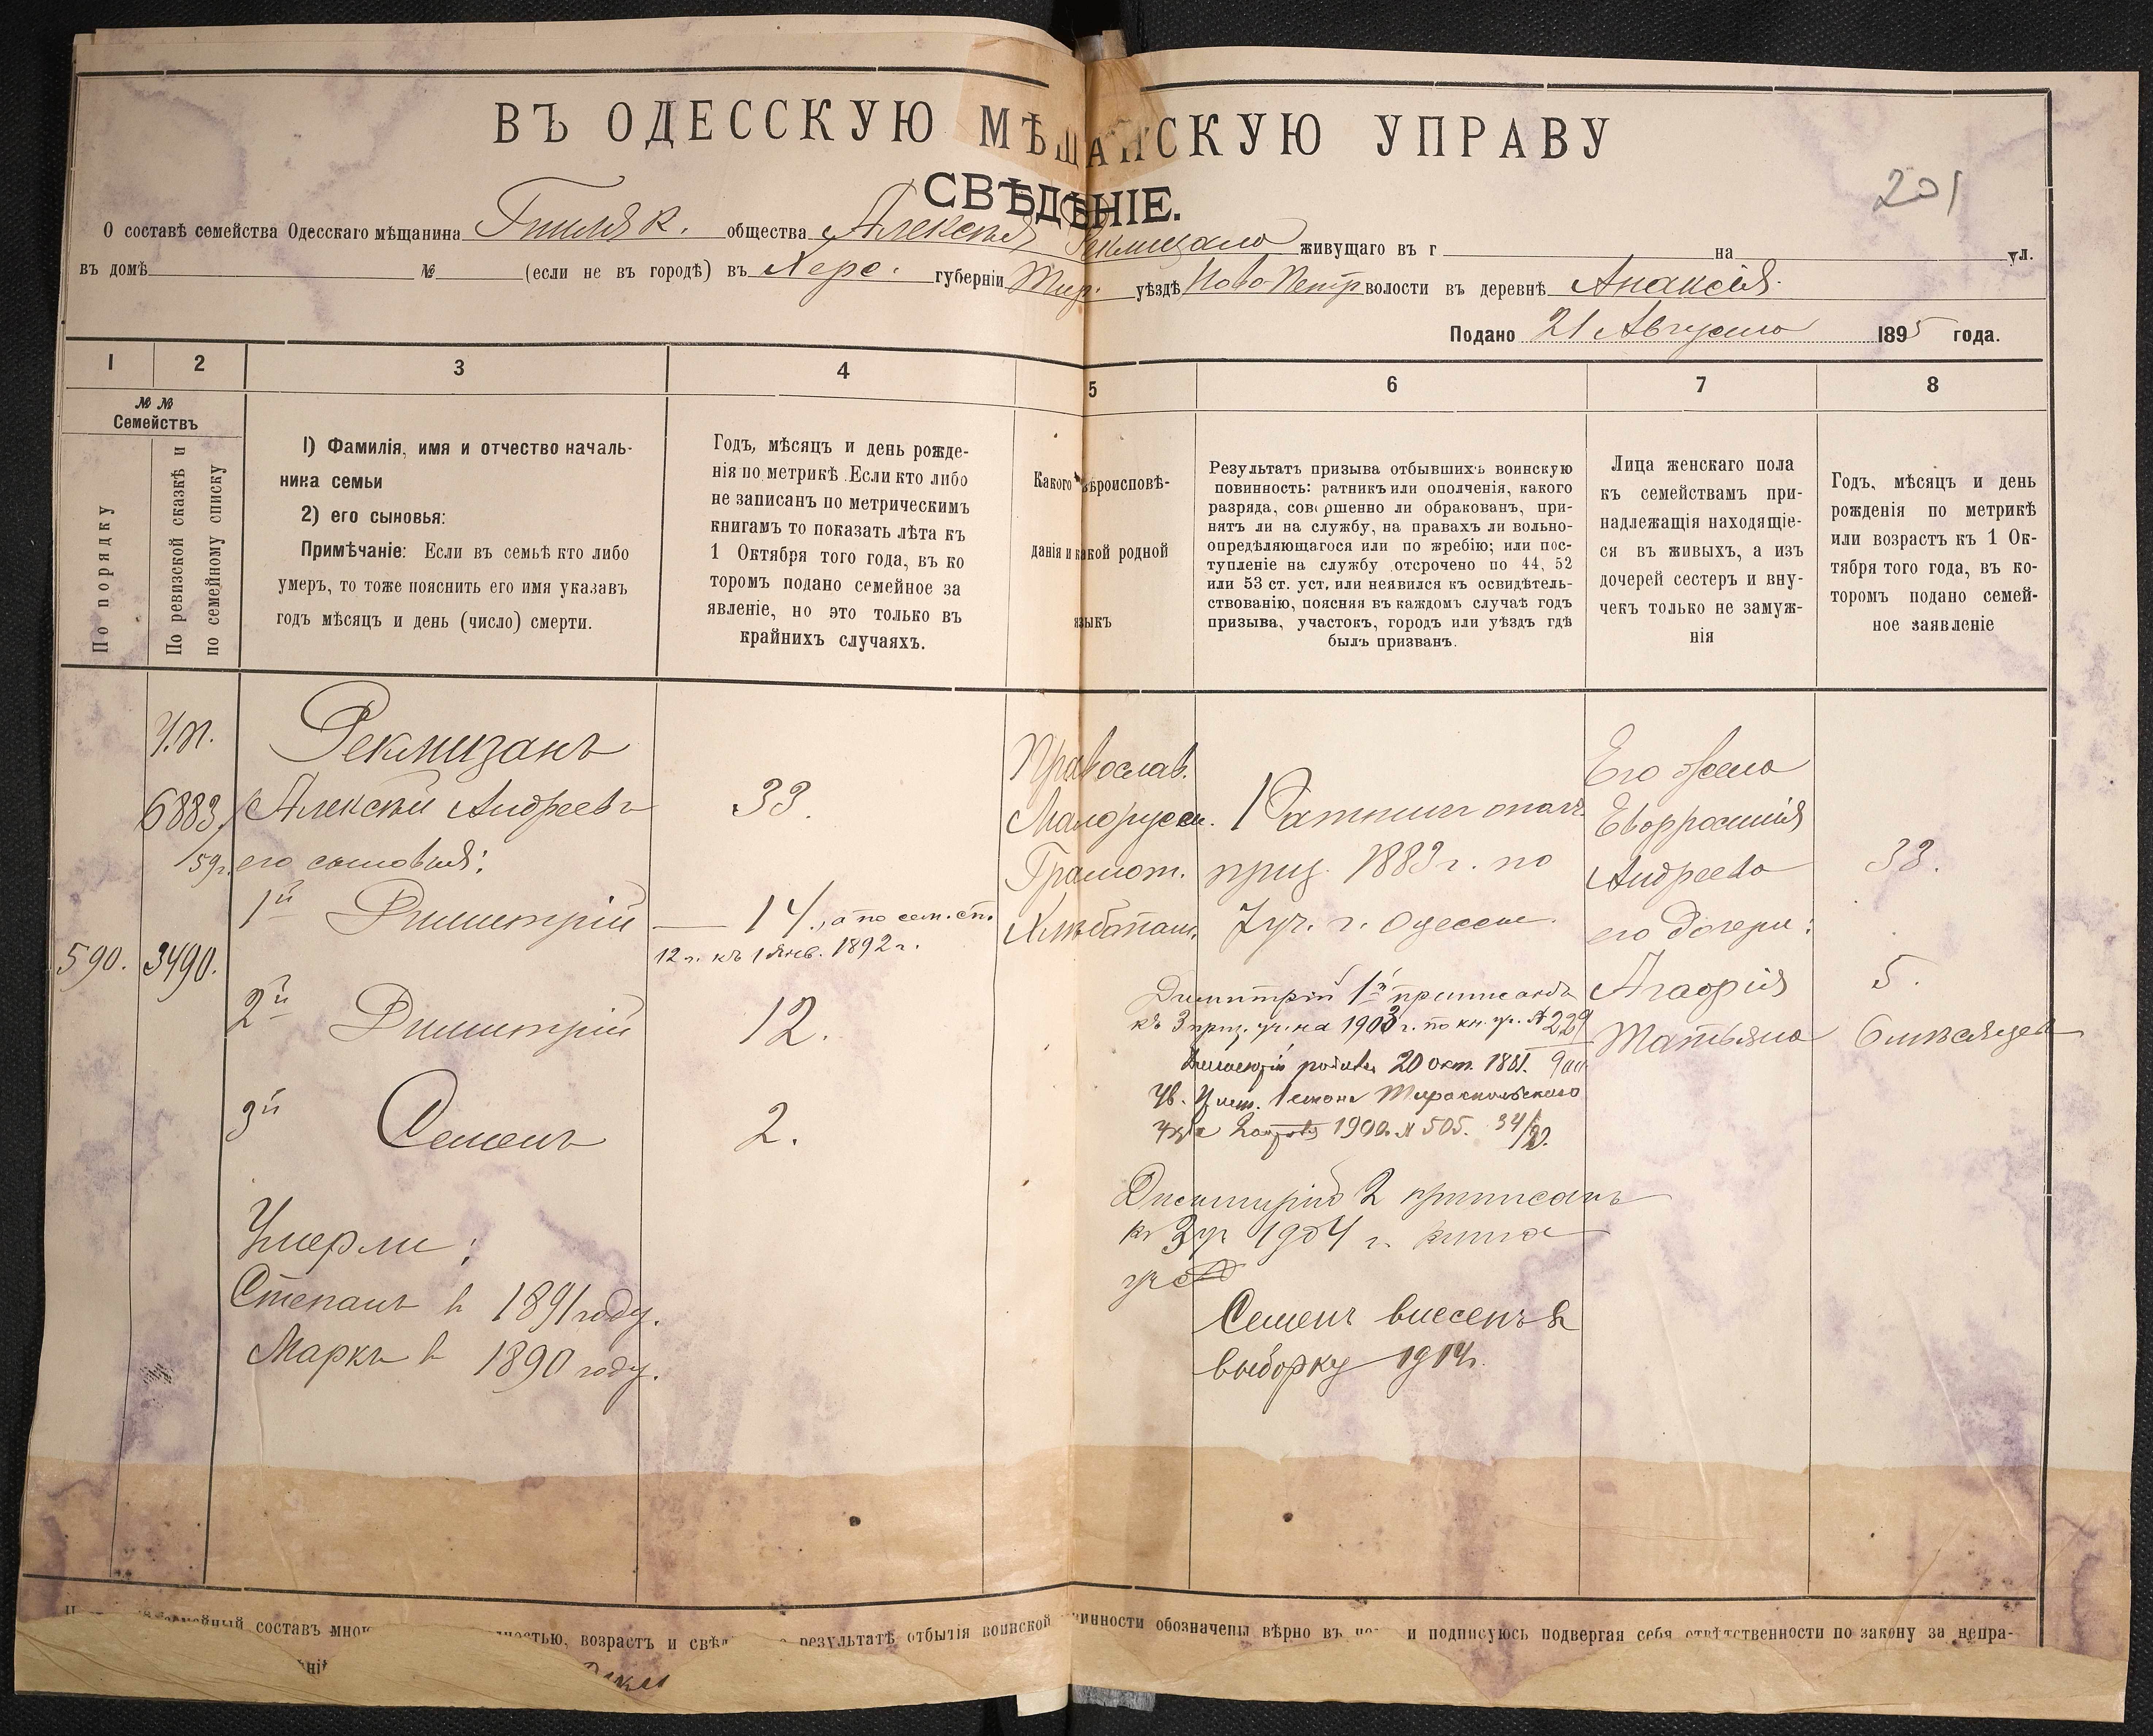 ВЪ ОДЕССКУЮ МѢЩАНСКУЮ УПРАВУ
СВѢДѢНІЕ.
201
О составѣ семейства Одесскаго мѣщанина общества Алексѣя живущаго въ г на ул.
въ домѣ № (если не въ городѣ) въ Херс. губерніи Тир. уѣздѣ Ново-Петр волости въ деревнѣ
Подано 21 Августа 1895 года.
1 2 3 4 5 6 7 8
№ № Семействъ
По порядку
По ревизской сказкѣ и
по семейному списку
1) Фамилія, имя и отчество началь-
ника семьи
2) его сыновья:
Примѣчаніе: Если въ семьѣ кто либо
умеръ, то тоже пояснить его имя указавъ
годъ мѣсяцъ и день (число) смерти.
Годъ, мѣсяцъ и день рожде-
нія по метрикѣ. Если кто либо
не записанъ по метрическимъ
книгамъ то показать лѣта къ
1 Октября того года, въ ко
торомъ подано семейное за
явленіе, но это только въ
крайнихъ случаяхъ.
Какого вѣроисповѣ-
данія и какой родной
языкъ
Результатъ призыва отбывшихъ воинскую
повинность: ратникъ или ополченія, какого
разряда, совершенно ли обракованъ, при-
нятъ ли на службу, на правахъ ли вольно-
опредѣляющагося или по жребію; или пос-
тупленіе на службу отсрочено по 44, 52
или 53 ст. уст. или неявился къ освидѣтель-
ствованію, поясняя въ каждомъ случаѣ годъ
призыва, участокъ, городъ или уѣздъ гдѣ
былъ призванъ.
Лица женскаго пола
къ семействамъ при-
надлежащія находящіе-
ся въ живыхъ, а изъ
дочерей сестеръ и вну-
чекъ только не замуж-
нія
Годъ, мѣсяцъ и день
рожденія по метрикѣ
или возрастъ къ 1 Ок-
тября того года, въ ко-
торомъ подано семей-
ное заявленіе
Ч.П.
6883
59 г.
590. 3490.
Рекмизанъ
Алексѣй Андреевъ 33.
его сыновья:
1й Димитрій 14., а по сем. сп.
12 г. къ 1 Янв. 1892 г.
2й Димитрій 12.
3й Семенъ 2.
Умерли:
Степанъ в 1891 году.
Маркъ в 1890 году.
Православ.
Малорусск.
Грамот.
Хлѣбопаш.
Ратникъ опол.
приз. 1883 г. по
7 уч. г. Одессы.
Димитрій 1й приписанъ
къ 3 приз. уч. на 1903 г. по кн. уч. № 229
Димитрій родился 20 окт. 1881.
Тираспольскаго
1900 № 505. 34/
Димитрій 2 приписанъ
къ 3 уч 1904 г. книга
Семенъ внесенъ в
выборку 1914 г.
Его жена
Евфросинія
Андреева 33.
его дочери:
Агафія 5.
Татьяна 6 мѣсяцев
семейный составъ мною возрастъ и результатѣ отбытія воинской повинности обозначены вѣрно въ и подписуюсь подвергая себя отвѣтственности по закону за непра-